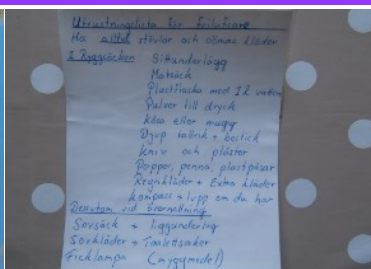 Utrustningslista för friluftsare
Ha alltid stövlar och oömma kläder
I Ryggsäcken Sittunderlägg
Matsäck
Plastflaska med 1 l vatten
Pulver till dryck
Kåsa eller mugg
Djup tallrik + bestick
Kniv och plåster
Papper, penna, plastpåsar
Regnkläder + Extra kläder
Kompass + lupp om du har
Dessutom vid övernattning
Sovsäck + liggunderlag
Sovkläder + Toalettsaker
Ficklampa (myggmedel)